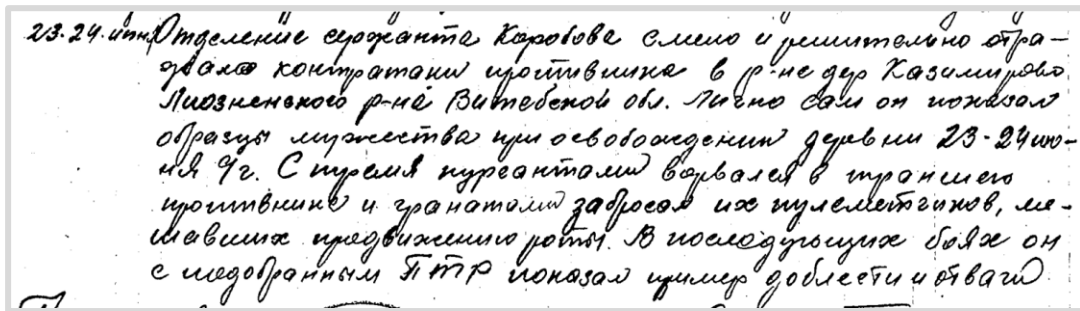 23-24. июня Отделение сержанта Коробова смело и решительно отра-
жало контратаки противника в р-не дер Казимирово
Лиозненского р-на Витебской обл. Лично сам он показал
образцы мужества при освобождении деревни 23-24 ию-
ня с/г. С тремя курсантами ворвался в траншею
противника и гранатами забросал их пулеметчиков, ме-
шавших продвижению роты. В последующих боях он
с подобранным ПТР показал пример доблести и отваги